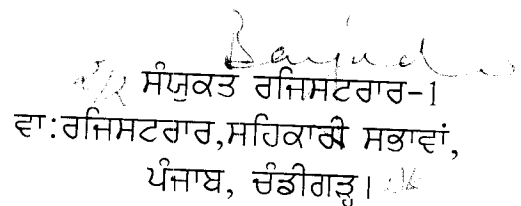 ਸੰਯੁਕਤ ਰਜਿਸਟਰਾਰ-1
ਵਾ:ਰਜਿਸਟਰਾਰ,ਸਹਿਕਾਰੀ ਸਭਾਵਾਂ,
ਪੰਜਾਬ, ਚੰਡੀਗੜ੍ਹ।